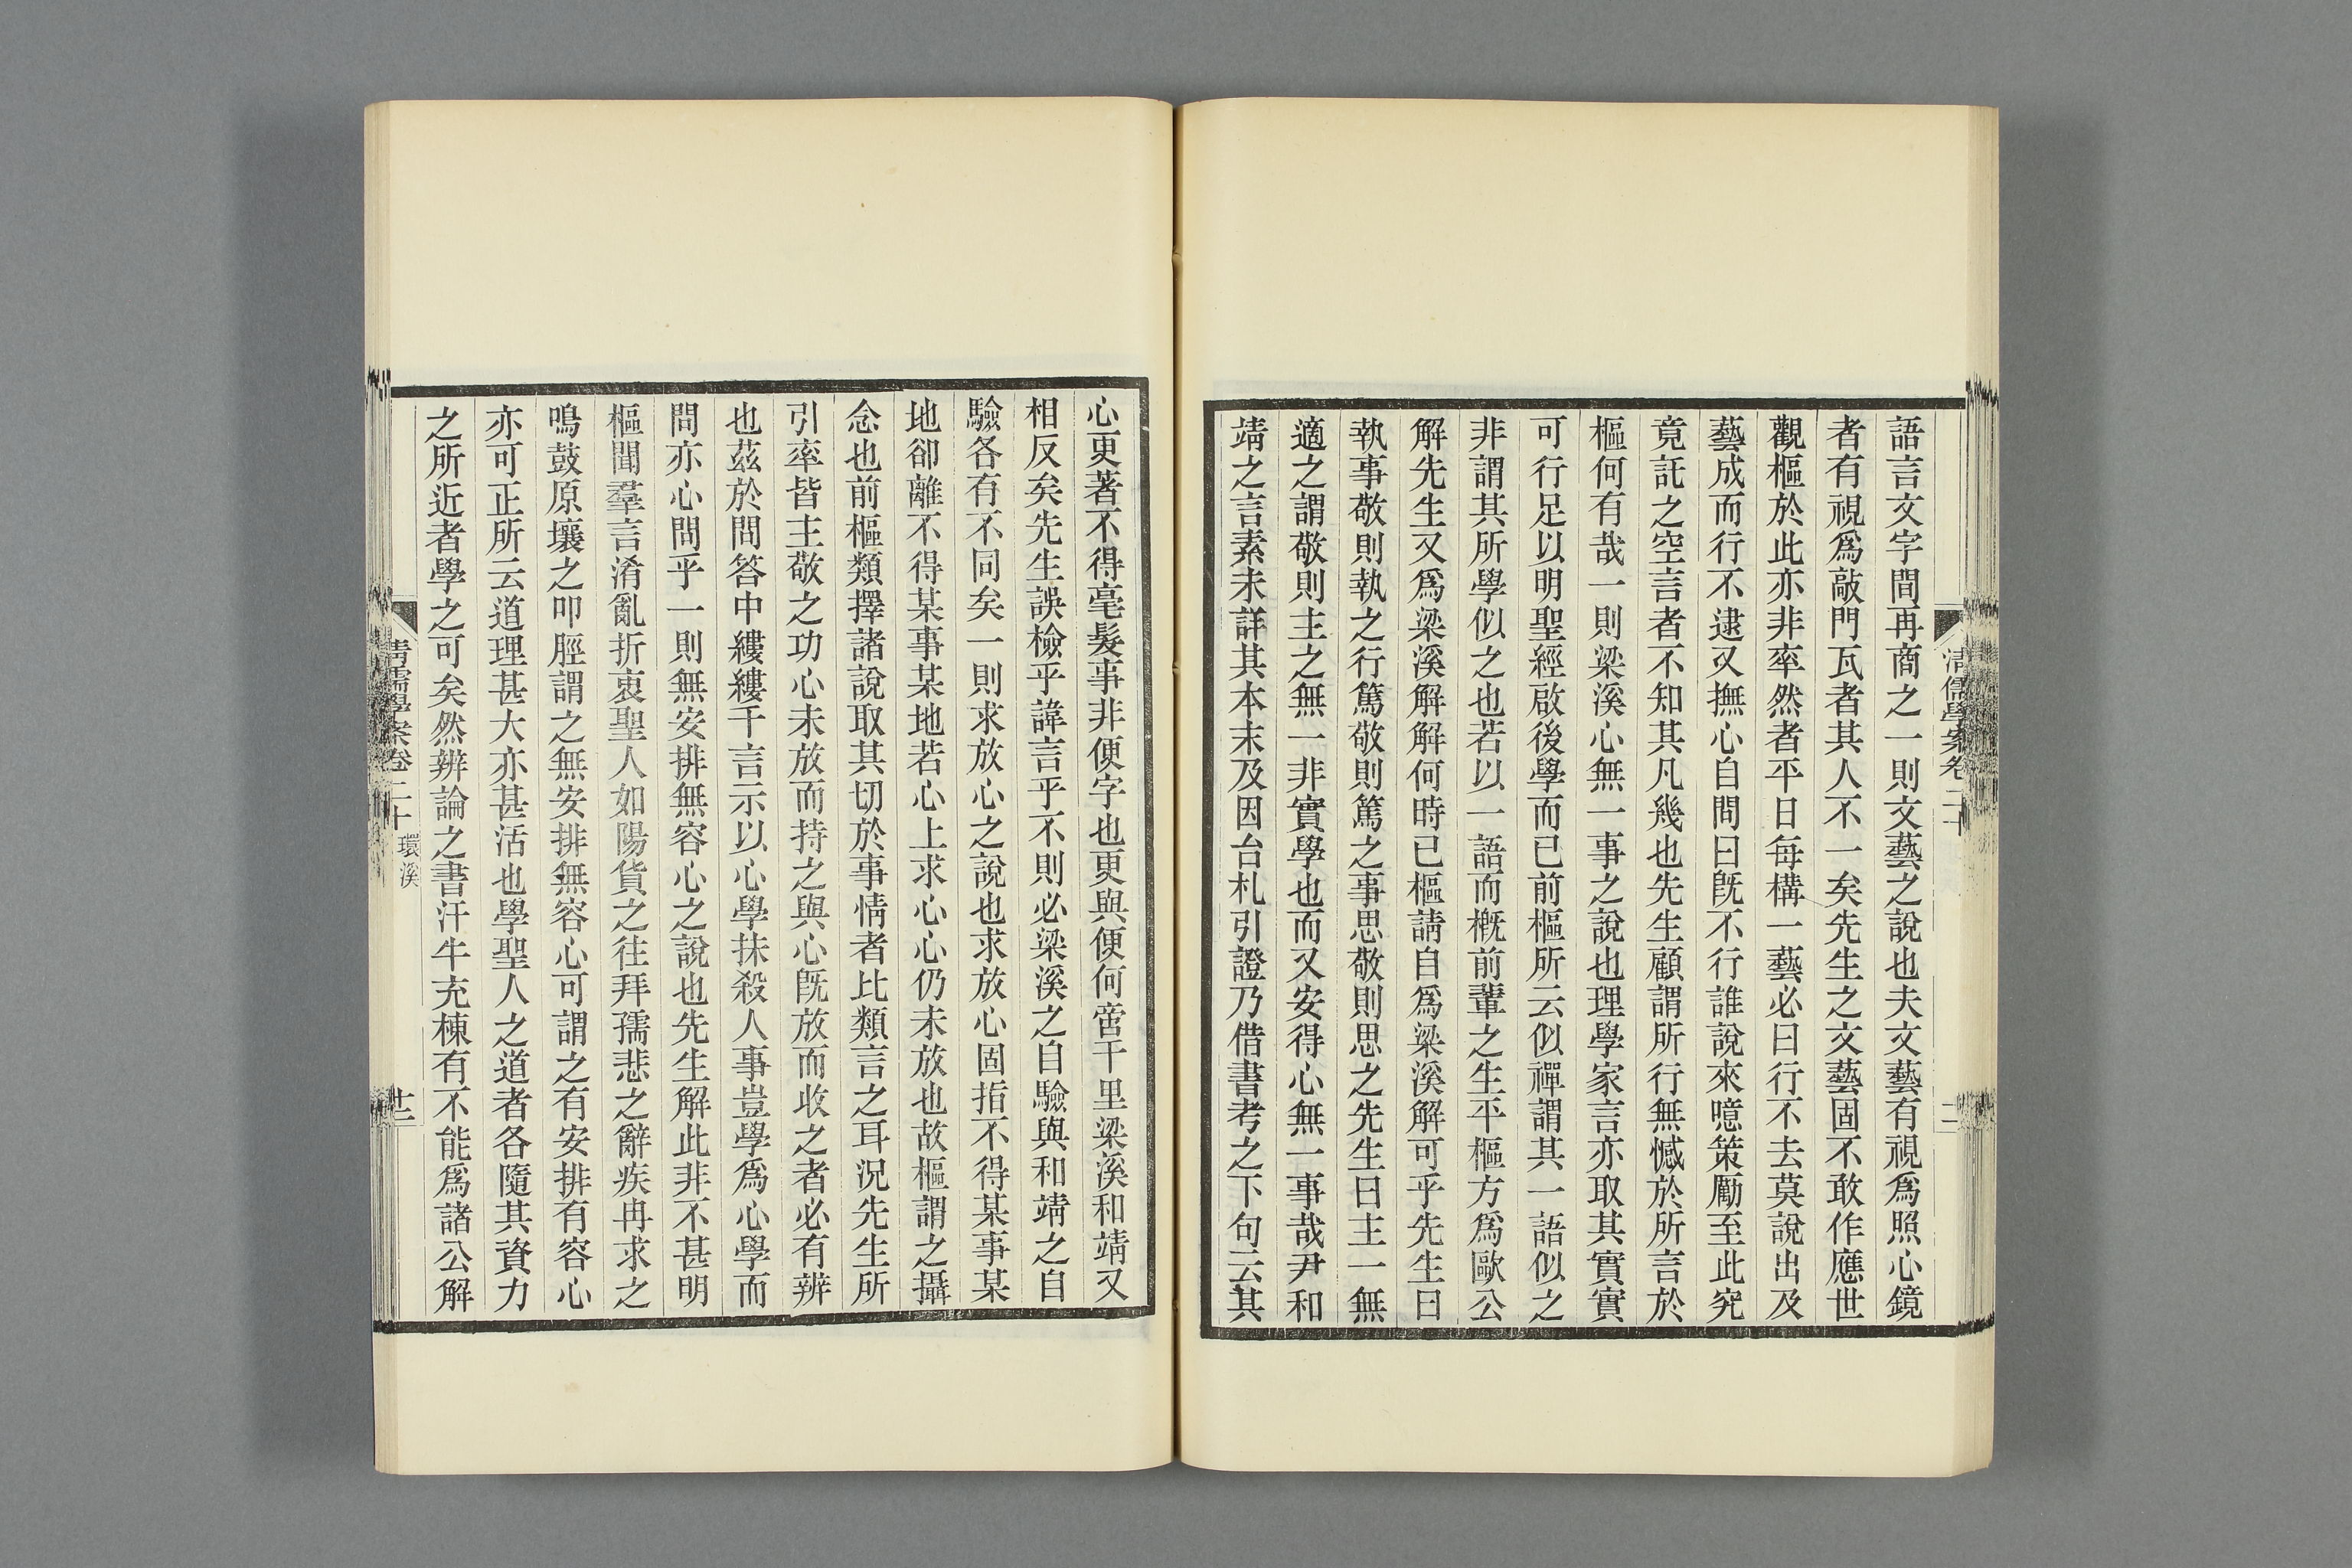 語言文字間再商之一則文藝之說也夫文藝有視爲照心鏡
者有視爲敲門瓦者其人不一矣先生之文藝固不敢作應世
觀樞於此亦非率然者平日每構一藝必曰行不去莫說出及
藝成而行不逮又撫心自問曰旣不行誰說來噫策勵至此究
竟託之空言者不知其凡幾也先生顧謂所行無憾於所言於
樞何有哉一則梁溪心無一事之說也理學家言亦取其實實
可行足以明聖經啟後學而已前樞所云似禪謂其一語似之
非謂其所學似之也若以一語而槪前輩之生平樞方爲歐公
解先生又爲梁溪解解何時已樞請自爲梁溪解可乎先生曰
執事敬則執之行篤敬則篤之事思敬則思之先生曰主一無
適之謂敬則主之無一非實學也而又安得心無一事哉尹和
靖之言素未詳其本末及因台札引證乃借書考之下句云其
心更著不得毫髮事非便字也更與便何啻千里梁溪和靖又
相反矣先生誤檢乎諱言乎不則必梁溪之自驗與和靖之自
驗各有不同矣一則求放心之說也求放心固指不得某事某
地卻離不得某事某地若心上求心心仍未放也故樞謂之攝
念也前樞類擇諸說取其切於事情者比類言之耳況先生所
引率皆主敬之功心未放而持之與心旣放而收之者必有辨
也茲於問答中縷縷千言示以心學抹殺人事豈學爲心學而
問亦心問乎一則無安排無容心之說也先生解此非不甚明
樞聞羣言淆亂折衷聖人如陽貨之往拜孺悲之辭疾冉求之
鳴鼓原壤之叩脛謂之無安排無容心可謂之有安排有容心
亦可正所云道理甚大亦甚活也學聖人之道者各隨其資力
之所近者學之可矣然辨論之書汗牛充棟有不能爲諸公解
清儒學案卷二十 環溪